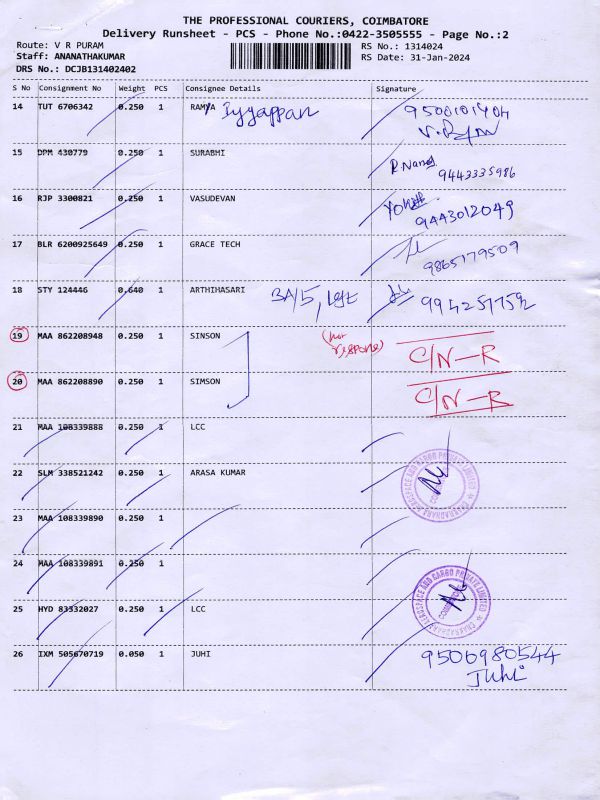 THE PROFESSIONAL COURIERS, COIMBATORE
Delivery Runsheet - PCS - Phone No.:0422-3505555 - Page No.:2
Route: V R PURAM RS No.: 1314024
Staff: ANANATHAKUMAR RS Date: 31-Jan-2024
DRS No.: DCJB131402402
S No Consignment No Weight PCS Consignee Details Signature
14 TUT 6706342 0.250 1 RAMYA Iyyappan
15 DPM 430779 0.250 1 SURABHI
9443335986
16 RJP 3300821 0.250 1 VASUDEVAN
9443012049
17 BLR 6200925649 0.250 1 GRACE TECH
9865179509
18 STY 124446 0.640 1 ARTHIHASARI
19 MAA 862208948 0.250 1 SINSON (not respone) C/N-R
20 MAA 862208890 0.250 1 SIMSON C/N-R
21 MAA 108339888 0.250 1 LCC
22 SLM 338521242 0.250 1 ARASA KUMAR
23 MAA 108339890 0.250 1
24 MAA 108339891 0.250 1
25 HYD 83332027 0.250 1 LCC
AEROSPACE AND CARGO PRIVATE LIMITED
26 IXM 505670719 0.050 1 JUHI 9506980544
Juhi